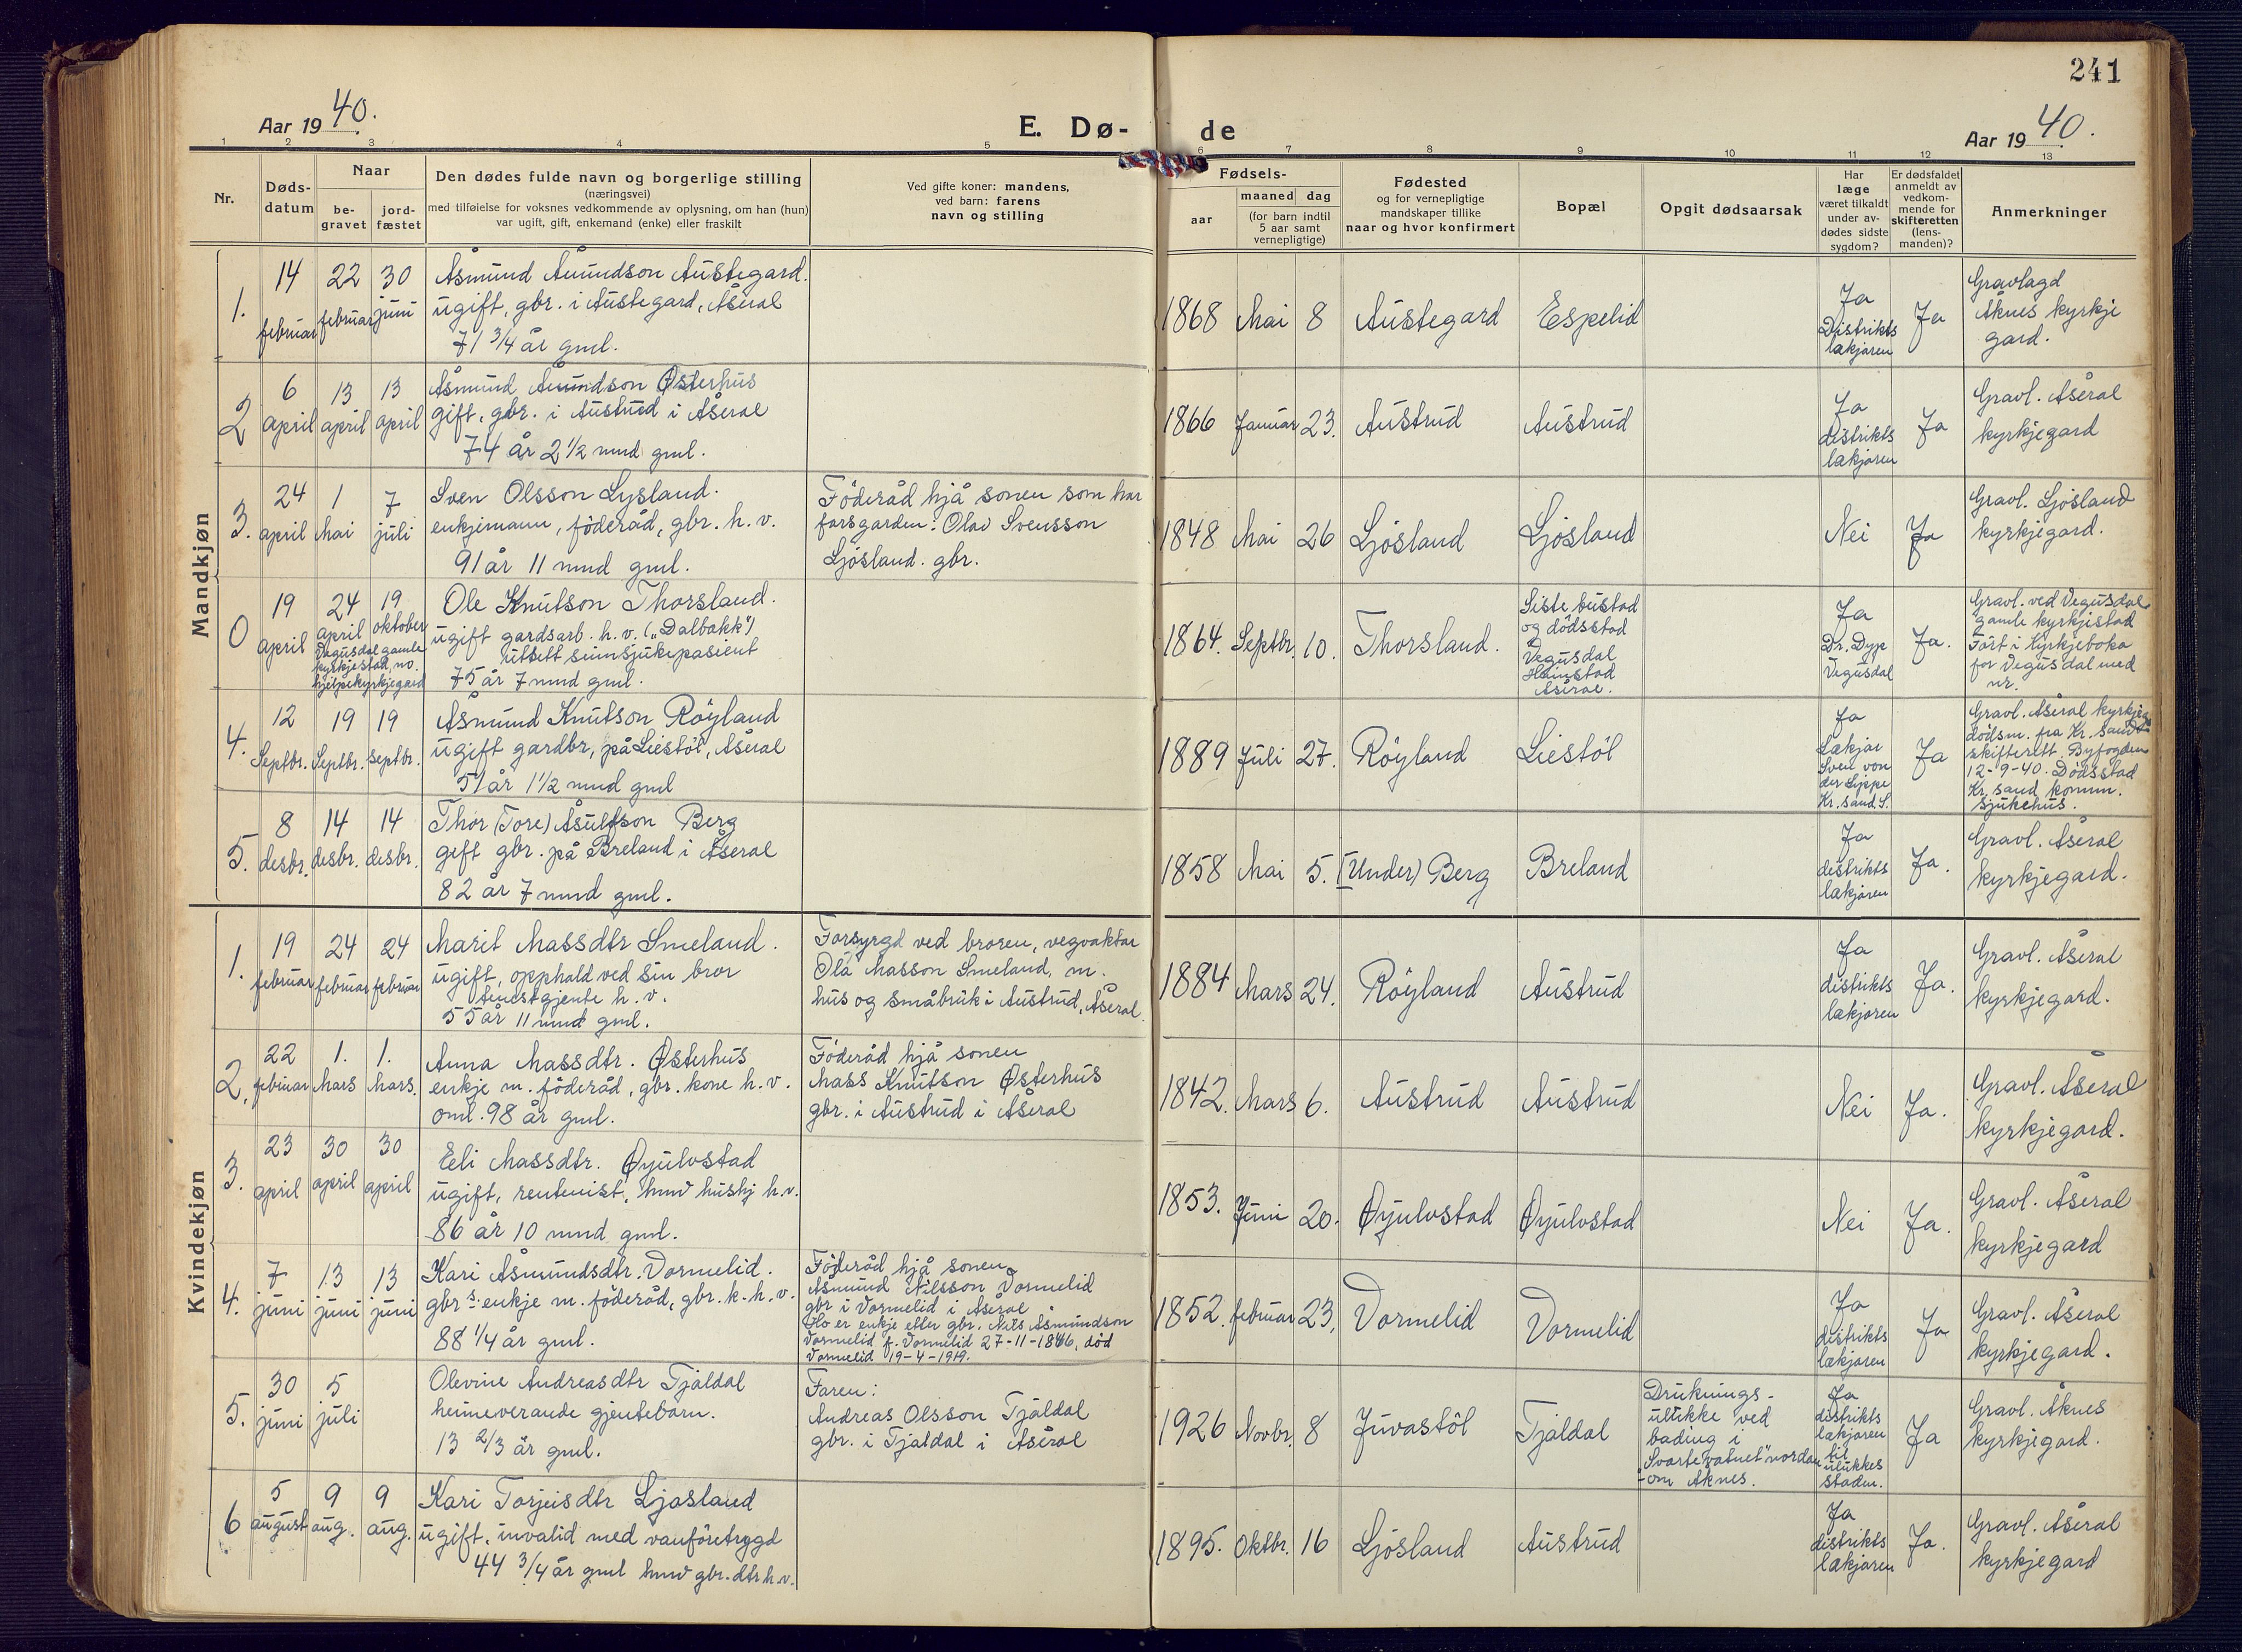 241
Aar 1940.
E. Dø-
de
Aar 1940.
1 2 3 4 5 6 7 8 9 10 11 12 13
Nr.
Døds-
datum
Naar
be-
gravet
jord-
fæstet
Den dødes fulde navn og borgerlige stilling
(næringsvei)
med tilføielse for voksnes vedkommende av oplysning, om han (hun)
var ugift, gift, enkemand (enke) eller fraskilt
Ved gifte koner: mandens,
ved barn: farens
navn og stilling
Fødsels-
aar
maaned
dag
(for barn indtil
5 aar samt
vernepligtige)
Fødested
og for vernepligtige
mandskaper tillike
naar og hvor konfirmert
Bopæl
Opgit dødsaarsak
Har
læge
været tilkaldt
under av-
dødes sidste
sygdom?
Er dødsfaldet
anmeldt av
vedkom-
mende for
skifteretten
(lens-
manden)?
Anmerkninger
Mandkjøn
1.
14
februar
22
februar
30
juni
Åsmund Åmundson Austegard.
ugift, gbr. i Austegard, Åseral
71 3/4 år gml.
1868
Mai
8
Austegard
Espelid
Ja
Distrikts
lækjaren
Ja
Gravlagd
Åknes kyrkje
gard.
2
6
april
13
april
13
april
Åsmund Åmundson Østerhus
gift, gbr. i Austrud i Åseral
74 år 2 1/2 mnd gml.
1866
Januar
23.
Austrud
Austrud
Ja
distrikts
lækjaren
Ja
Gravl. Åseral
kyrkjegard
3.
24
april
1
Mai
7
juli
Sven Olsson Lysland.
enkjemann, föderåd, gbr. h. v.
91 år 11 mnd gml.
Föderåd hjå sonen som har
farsgarden: Olav Svensson
Ljösland. gbr.
1848
Mai
26
Ljösland
Ljösland
Nei
Ja
Gravl. Ljösland
kyrkjegard.
0
19
april
24
april
Vegusdal gamle
kyrkjestad no.
hjelpekyrkjegard
19
oktober
Ole Knutson Thorsland.
ugift gardsarb. h. v. („Dalbakk")
utsett sinnsjukepasient
75 år 7 mnd gml.
1864.
Septbr.
10.
Thorsland.
Siste bustad
og dödsstad
Vegusdal
Heimstad
Åseral.
Ja
Dr. Dyp
Vegusdal
Ja.
Gravl. ved Vegusdal
gamle kyrkjestad
Fört i Kyrkjeboka
for Vegusdal med
nr.
4.
12
Septbr.
19
Septbr.
19
Septbr.
Åsmund Knutson Röyland
ugift gardbr, på Liestöl, Åseral
51 år 1 1/2 mnd gml
1889
Juli
27.
Röyland
Liestöl
Ja
Lækjar
Sven von
der Lippe
Kr. sand S.
Ja
Gravl. Åseral kyrkjeg.
Dödsm. fra Kr. sand
skifterett. Byfogden
12-9-40. Dödsstad
Kr. sand komm.
sjukehus.
5.
8
desbr.
14
desbr.
14
desbr.
Thor (Tore) Åsulfson Berg
gift gbr. på Breland i Åseral
82 år 7 mnd gml.
1858
Mai
5.
(Under) Berg
Breland
Ja
distrikts
lækjaren
Ja.
Gravl. Åseral
kyrkjegard.
Kvindekjøn
1.
19
februar
24
februar
24
februar
Marit Massdtr Smeland.
ugift, opphald ved sin bror
tenestgjente h. v.
55 år 11 mnd gml.
Forsyrgd ved broren, vegvaktar
Ola Masson Smeland, m.
hus og småbruk i Austrud, Åseral.
1884
Mars
24.
Röyland
Austrud
Ja
distrikts
lækjaren
Ja.
Gravl. Åseral
kyrkjegard.
2.
22
februar
1.
Mars
1.
Mars.
Anna Massdtr. Østerhus
enkje m. föderåd, gbr. kone h. v.
oml. 98 år gml.
Föderåd hjå sonen
Mass Knutson Østerhus
gbr. i Austrud i Åseral
1842.
Mars
6.
Austrud
Austrud
Nei
Ja.
Gravl. Åseral
kyrkjegard.
3.
23
april
30
april
30
april
Eli Massdtr. Øyulvstad
ugift, rentenist, hmv hushj h. v.
86 år 10 mnd gml.
1853.
Juni
20.
Øyulvstad
Øyulvstad
Nei
Ja.
Gravl. Åseral
kyrkjegard
4.
7
juni
13
juni
13
juni
Kari Åsmundsdtr. Vormelid.
gbr s. enkje m. föderåd, gbr. k. h. v.
88 1/4 år gml.
Föderåd hjå sonen
Åsmund Nilsson Vormelid
gbr i Vormelid i Åseral
Ho er enkje etter gbr. Nils Åsmundson
Vormelid f. Vormelid 27-11-1846, död
Vormelid 19-4-1919.
1852.
februar
23.
Vormelid
Vormelid
Ja
distrikts
lækjaren
Ja
Gravl. Åseral
kyrkjegard.
5.
30
juni
5
juli
Olevine Andreasdtr Tjaldal
heimeverande gjentebarn.
13 2/3 år gml.
Faren:
Andreas Olsson Tjaldal
gbr. i Tjaldal i Åseral
1926
Novbr.
8
Juvastöl
Tjaldal
Druknings-
ulukke ved
bading i
"Svartevatnet" nordan
-om Åknes.
Ja
distrikts
lækjaren
til
ulukkes
staden.
Ja
Gravl. Åknes
kyrkjegard.
6
5
august
9
aug.
9
aug.
Kari Torjeisdtr Ljosland
ugift, invalid med vanföretrygd
44 3/4 år gml hmv gbr. dtr h. v.
1895.
Oktbr.
16
Ljösland
Austrud
Ja
distrikts
lækjaren
Ja.
Gravl. Åseral
kyrkjegard